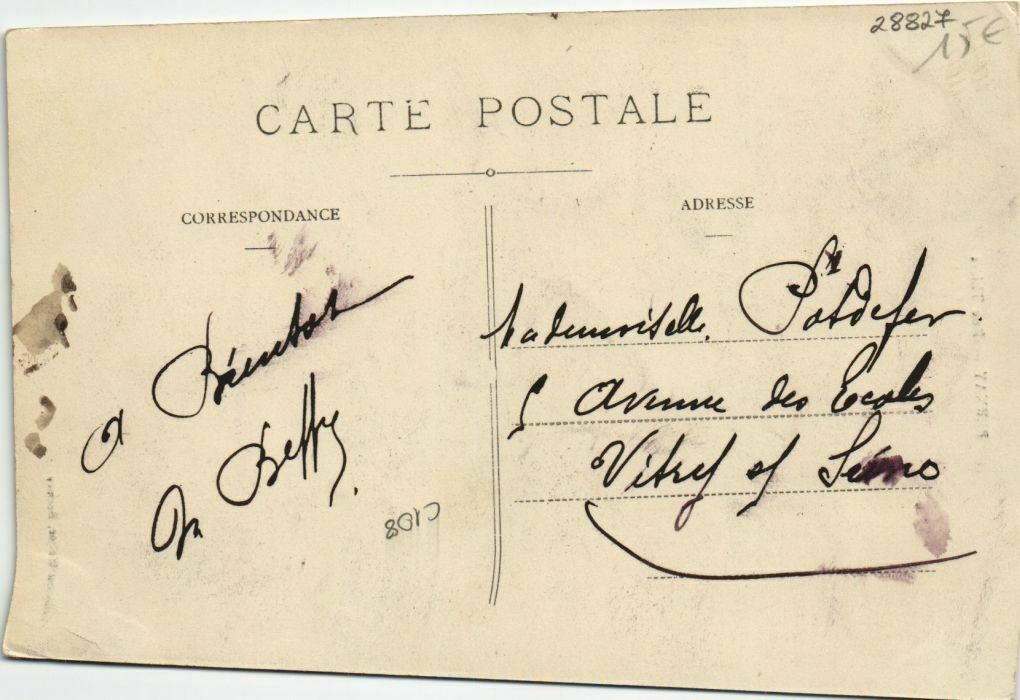 28827
15€
CARTE POSTALE
CORRESPONDANCE
ADRESSE
a Bientot
M Beffy.
C108
Mademoiselle Potdefer
5 Avenue des Ecoles
Vitry s/ Seine